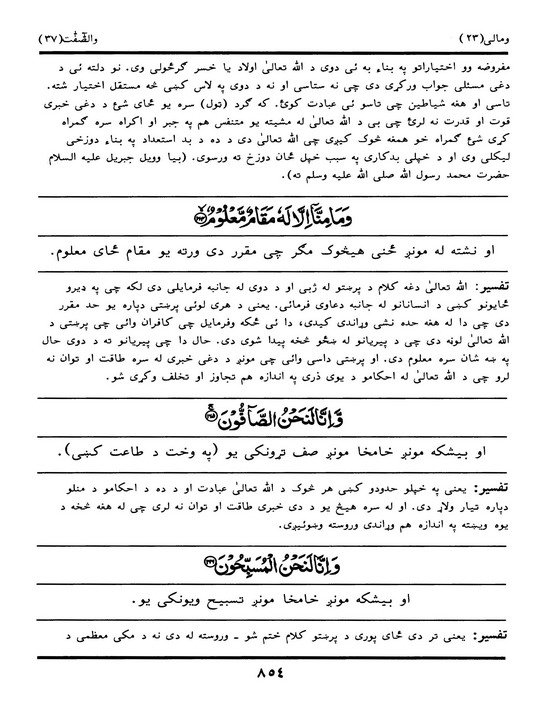 ومالی(۲۳) والصّٰٓفّٰت(۳۷)
مفروضه وو اختیاراتو په بناء به ئی دوی د الله تعالیٰ اولاد یا خسر گرځولی وی. نو دلته ئی د
دغی مسئلی جواب ورکړی دی چی نه ستاسی او نه د دوی په خلق کښی څه مستقل اختیار شته.
تاسی او هغه شیاطین چی تاسو ئی عبادت کوئ. که گرد (ټول) سره یو ځای شئ د دغی خبری
قوت او قدرت نه لرئ چی بی د الله تعالیٰ له مشیته یو متنفس هم په جبر او اکراه سره گمراه
کړی شئ گمراه خو همغه څوک کیږی چی الله تعالیٰ دی د ده د بد استعداد په بناء دوزخی
لیکلی وی او د خپلی بدکاری په سبب خپل ځان دوزخ ته ورسوی. (بیا وویل جبریل علیه السلام
حضرت محمد رسول الله صلی الله علیه وسلم ته).
وَمَا مِنَّآ اِلَّا لَهٗ مَقَامٌ مَّعْلُوْمٌ ۝۱۶۴
او نشته له مونږ ځنی هیڅوک مگر چی مقرر دی ورته یو مقام ځای معلوم.
تفسیر: الله تعالیٰ دغه کلام د پرښتو له ژبی او د دوی له جانبه فرمایلی دی لکه چی په ډیرو
ځایونو کښی د انسانانو له جانبه دعاوی فرمائی. یعنی د هری لوئی پرښتی دپاره یو حد مقرر
دی چی دا له هغه حده نشی وړاندی کیدی، دا ئی ځکه وفرمایل چی کافران وائی چی پرښتی د
الله تعالیٰ لوڼه دی چی د پیریانو له ښځو څخه پیدا شوی دی. حال دا چی پیریانو ته د دوی حال
په ښه شان سره معلوم دی. او پرښتی داسی وائی چی مونږ د دغی خبری له سره طاقت او توان نه
لرو چی د الله تعالیٰ له احکامو د یوی ذری په اندازه هم تجاوز او تخلف وکړی شو.
وَّاِنَّا لَنَحْنُ الصَّآفُّوْنَ ۝۱۶۵
او بیشکه مونږ خامخا مونږ صف تړونکی یو (په وخت د طاعت کښی).
تفسیر: یعنی په خپلو حدودو کښی هر څوک د الله تعالیٰ عبادت او د ده د احکامو د منلو
دپاره تیار ولاړ دی. او له سره هیڅ یو د دی خبری طاقت او توان نه لری چی له هغه څخه د
یوه ویښته په اندازه هم وړاندی وروسته وښوئیږی.
وَاِنَّا لَنَحْنُ الْمُسَبِّحُوْنَ ۝۱۶۶
او بیشکه مونږ خامخا مونږ تسبیح ویونکی یو.
تفسیر: یعنی تر دی ځای پوری د پرښتو کلام ختم شو ـ وروسته له دی نه د مکی معظمی د
۸۵٤